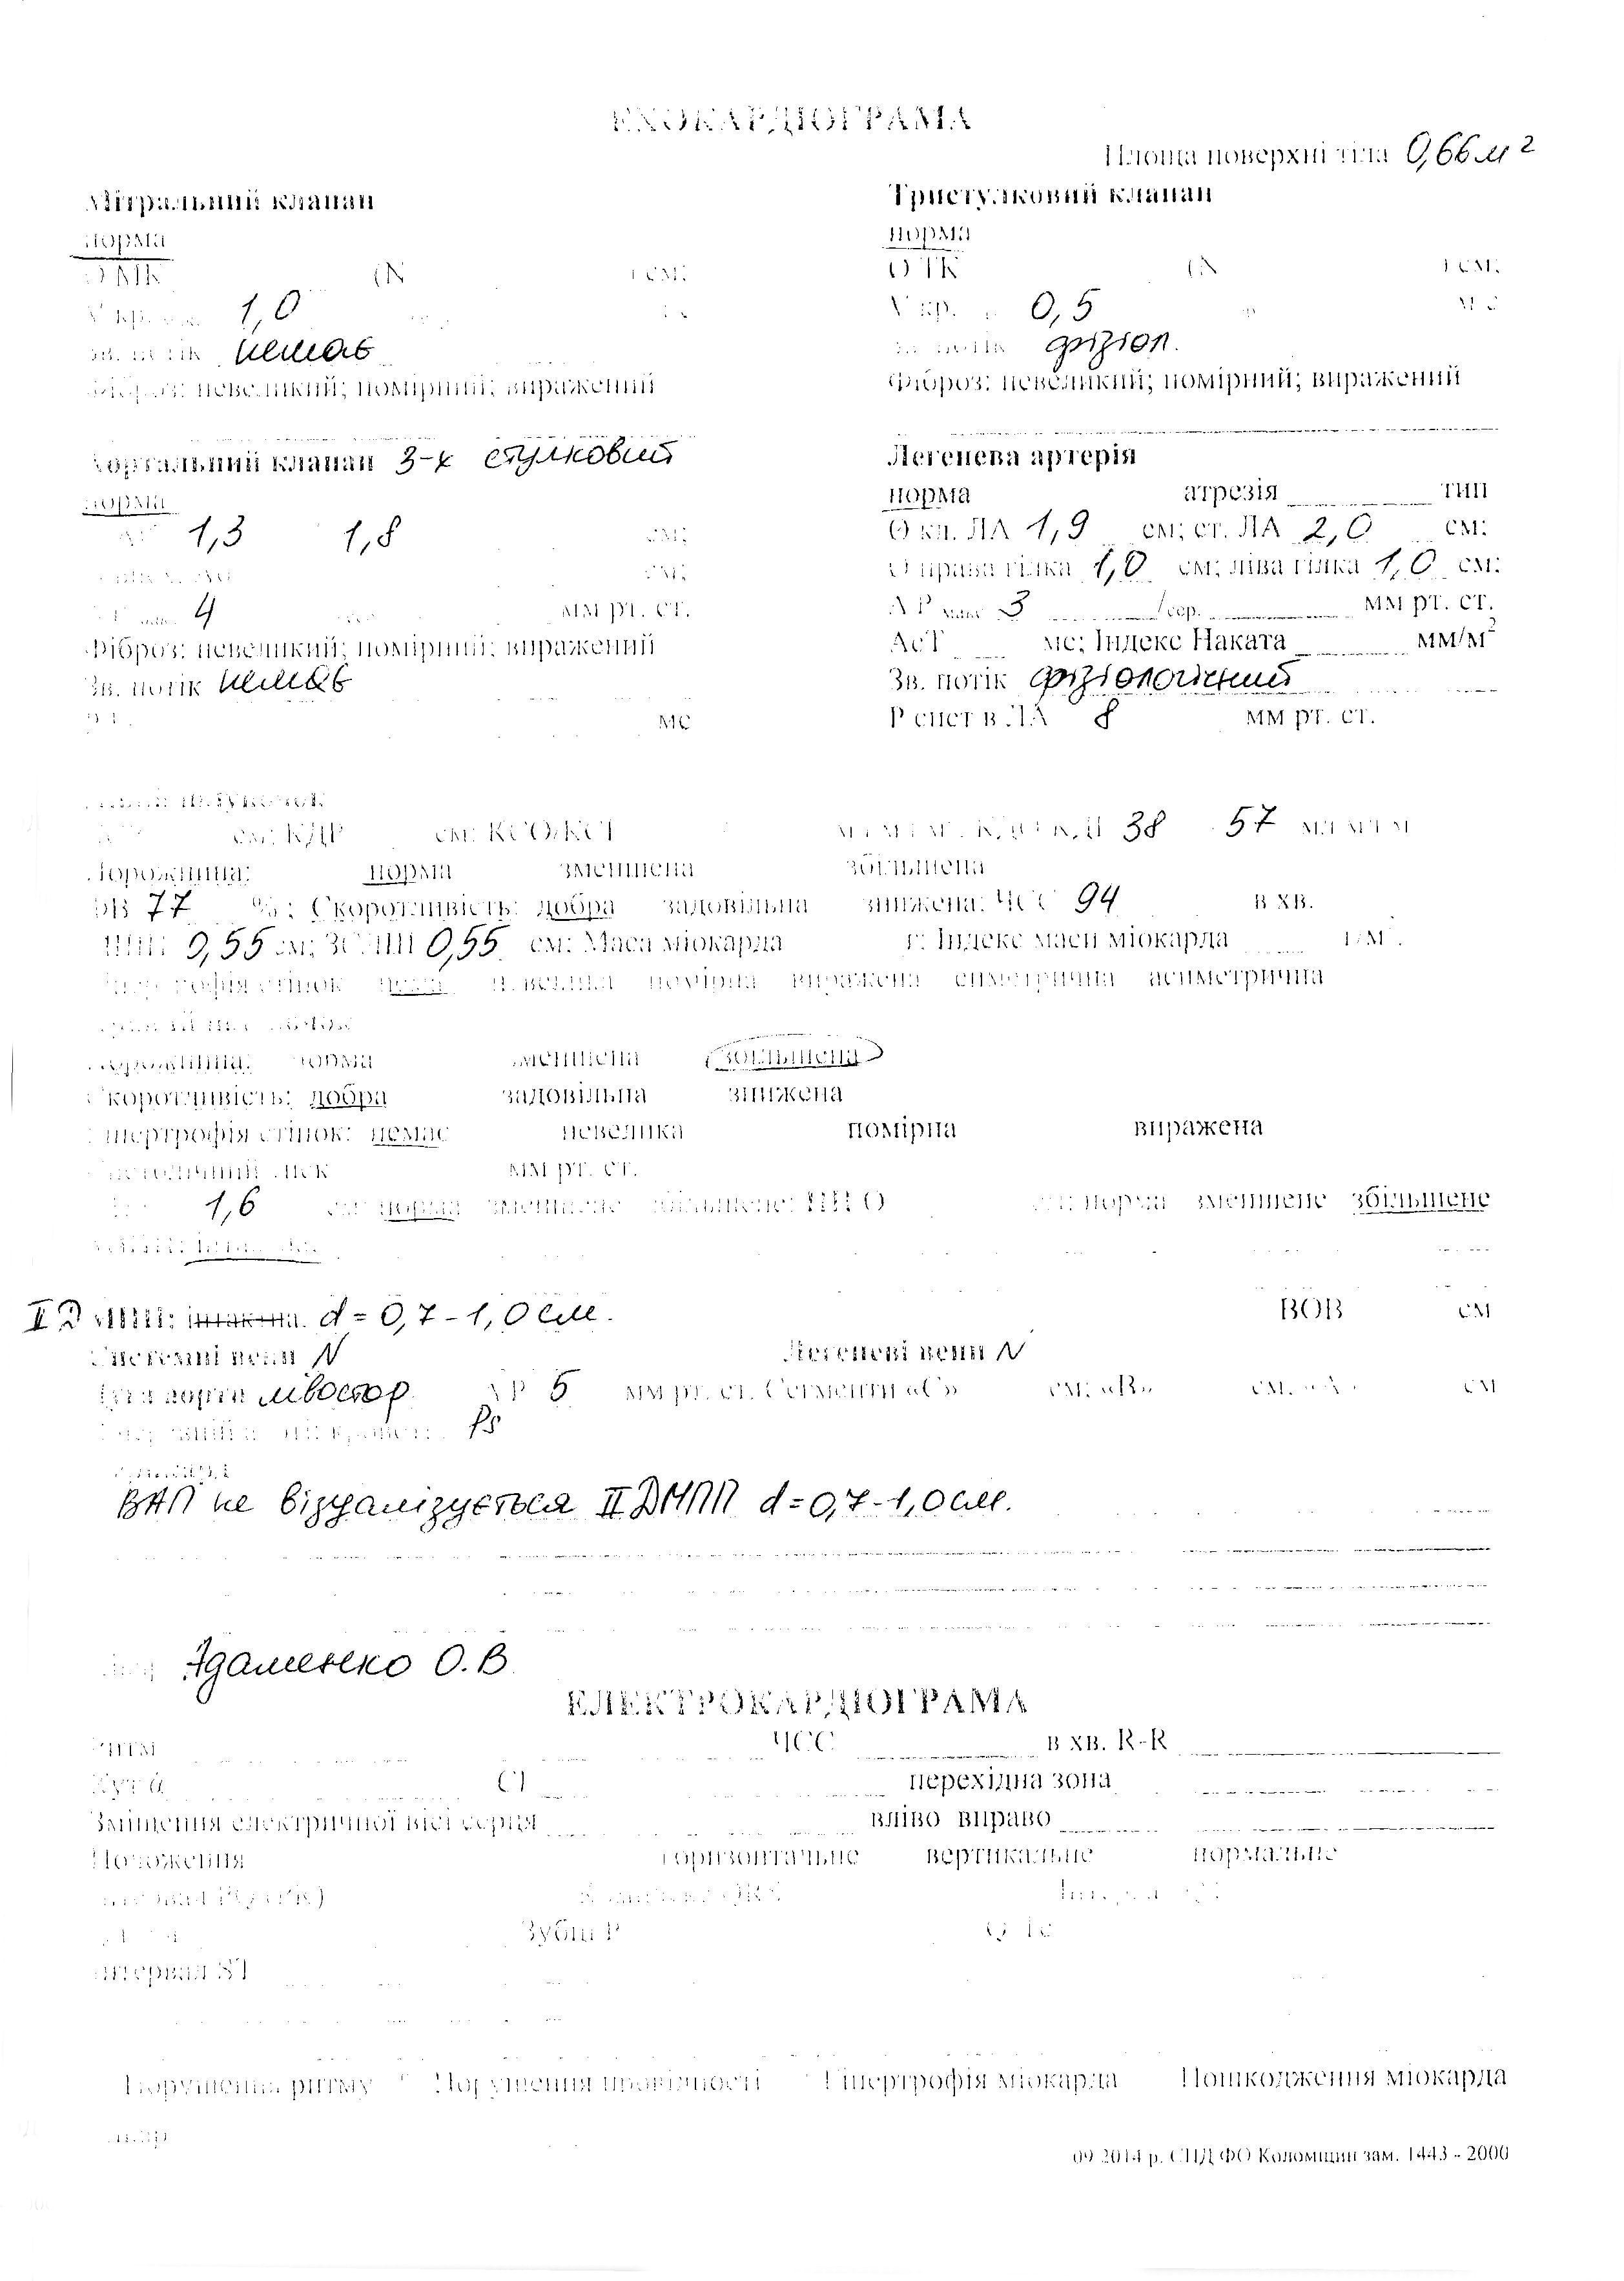 ЕХОКАРДІОГРАМА
Площа поверхні тіла 0,66 м²
Мітральний клапан
норма
О МК (N см;
V кр. 1,0
зв. потік немає
Фіброз: невеликий; помірний; виражений
Аортальний клапан 3-х стулковий
норма
1,3 1,8 см;
см;
4 мм рт. ст.
Фіброз: невеликий; помірний; виражений
Зв. потік немає
мс
Тристулковий клапан
норма
О ТК (N см;
V кр. 0,5 м/с
зв. потік фізіол.
Фіброз: невеликий; помірний; виражений
Легенева артерія
норма атрезія тип
О кл. ЛА 1,9 см; ст. ЛА 2,0 см;
О права гілка 1,0 см; ліва гілка 1,0 см;
ΔР макс 3 /сер. мм рт. ст.
АсТ мс; Індекс Наката мм/м²
Зв. потік фізіологічний
Р сист в ЛА 8 мм рт. ст.
см; КДР см; КСО/КСІ 38 57
Порожнина: норма зменшена збільшена
ФВ 77 %; Скоротливість: добра задовільна знижена; ЧСС 94 в хв.
МШП 0,55 см; ЗСЛШ 0,55 см; Маса міокарда г; Індекс маси міокарда г/м².
Гіпертрофія стінок немає невелика помірна виражена симетрична асиметрична
Порожнина: норма зменшена збільшена
Скоротливість: добра задовільна знижена
Гіпертрофія стінок: немає невелика помірна виражена
Систолічний тиск мм рт. ст.
1,6 см; норма зменшене збільшене; ПП О см; норма зменшене збільшене
II ДМПП: інтактна. d = 0,7 - 1,0 см. ВОВ см
Системні вени N Легеневі вени N
Дуга аорти лівостор. ΔР 5 мм рт. ст. Сегменти «С» см; «В» см. «А» см
Ps
ВАП не візуалізується II ДМПП d = 0,7 - 1,0 см.
Адаменко О. В
ЕЛЕКТРОКАРДІОГРАМА
Ритм ЧСС в хв. R-R
Кут α перехідна зона
Зміщення електричної вісі серця вліво вправо
Положення горизонтальне вертикальне нормальне
Зубці Р
Інтервал ST
Порушення ритму Порушення провідності Гіпертрофія міокарда Пошкодження міокарда
09.2014 р. СПД ФО Коломіцин зам. 1443 - 2000